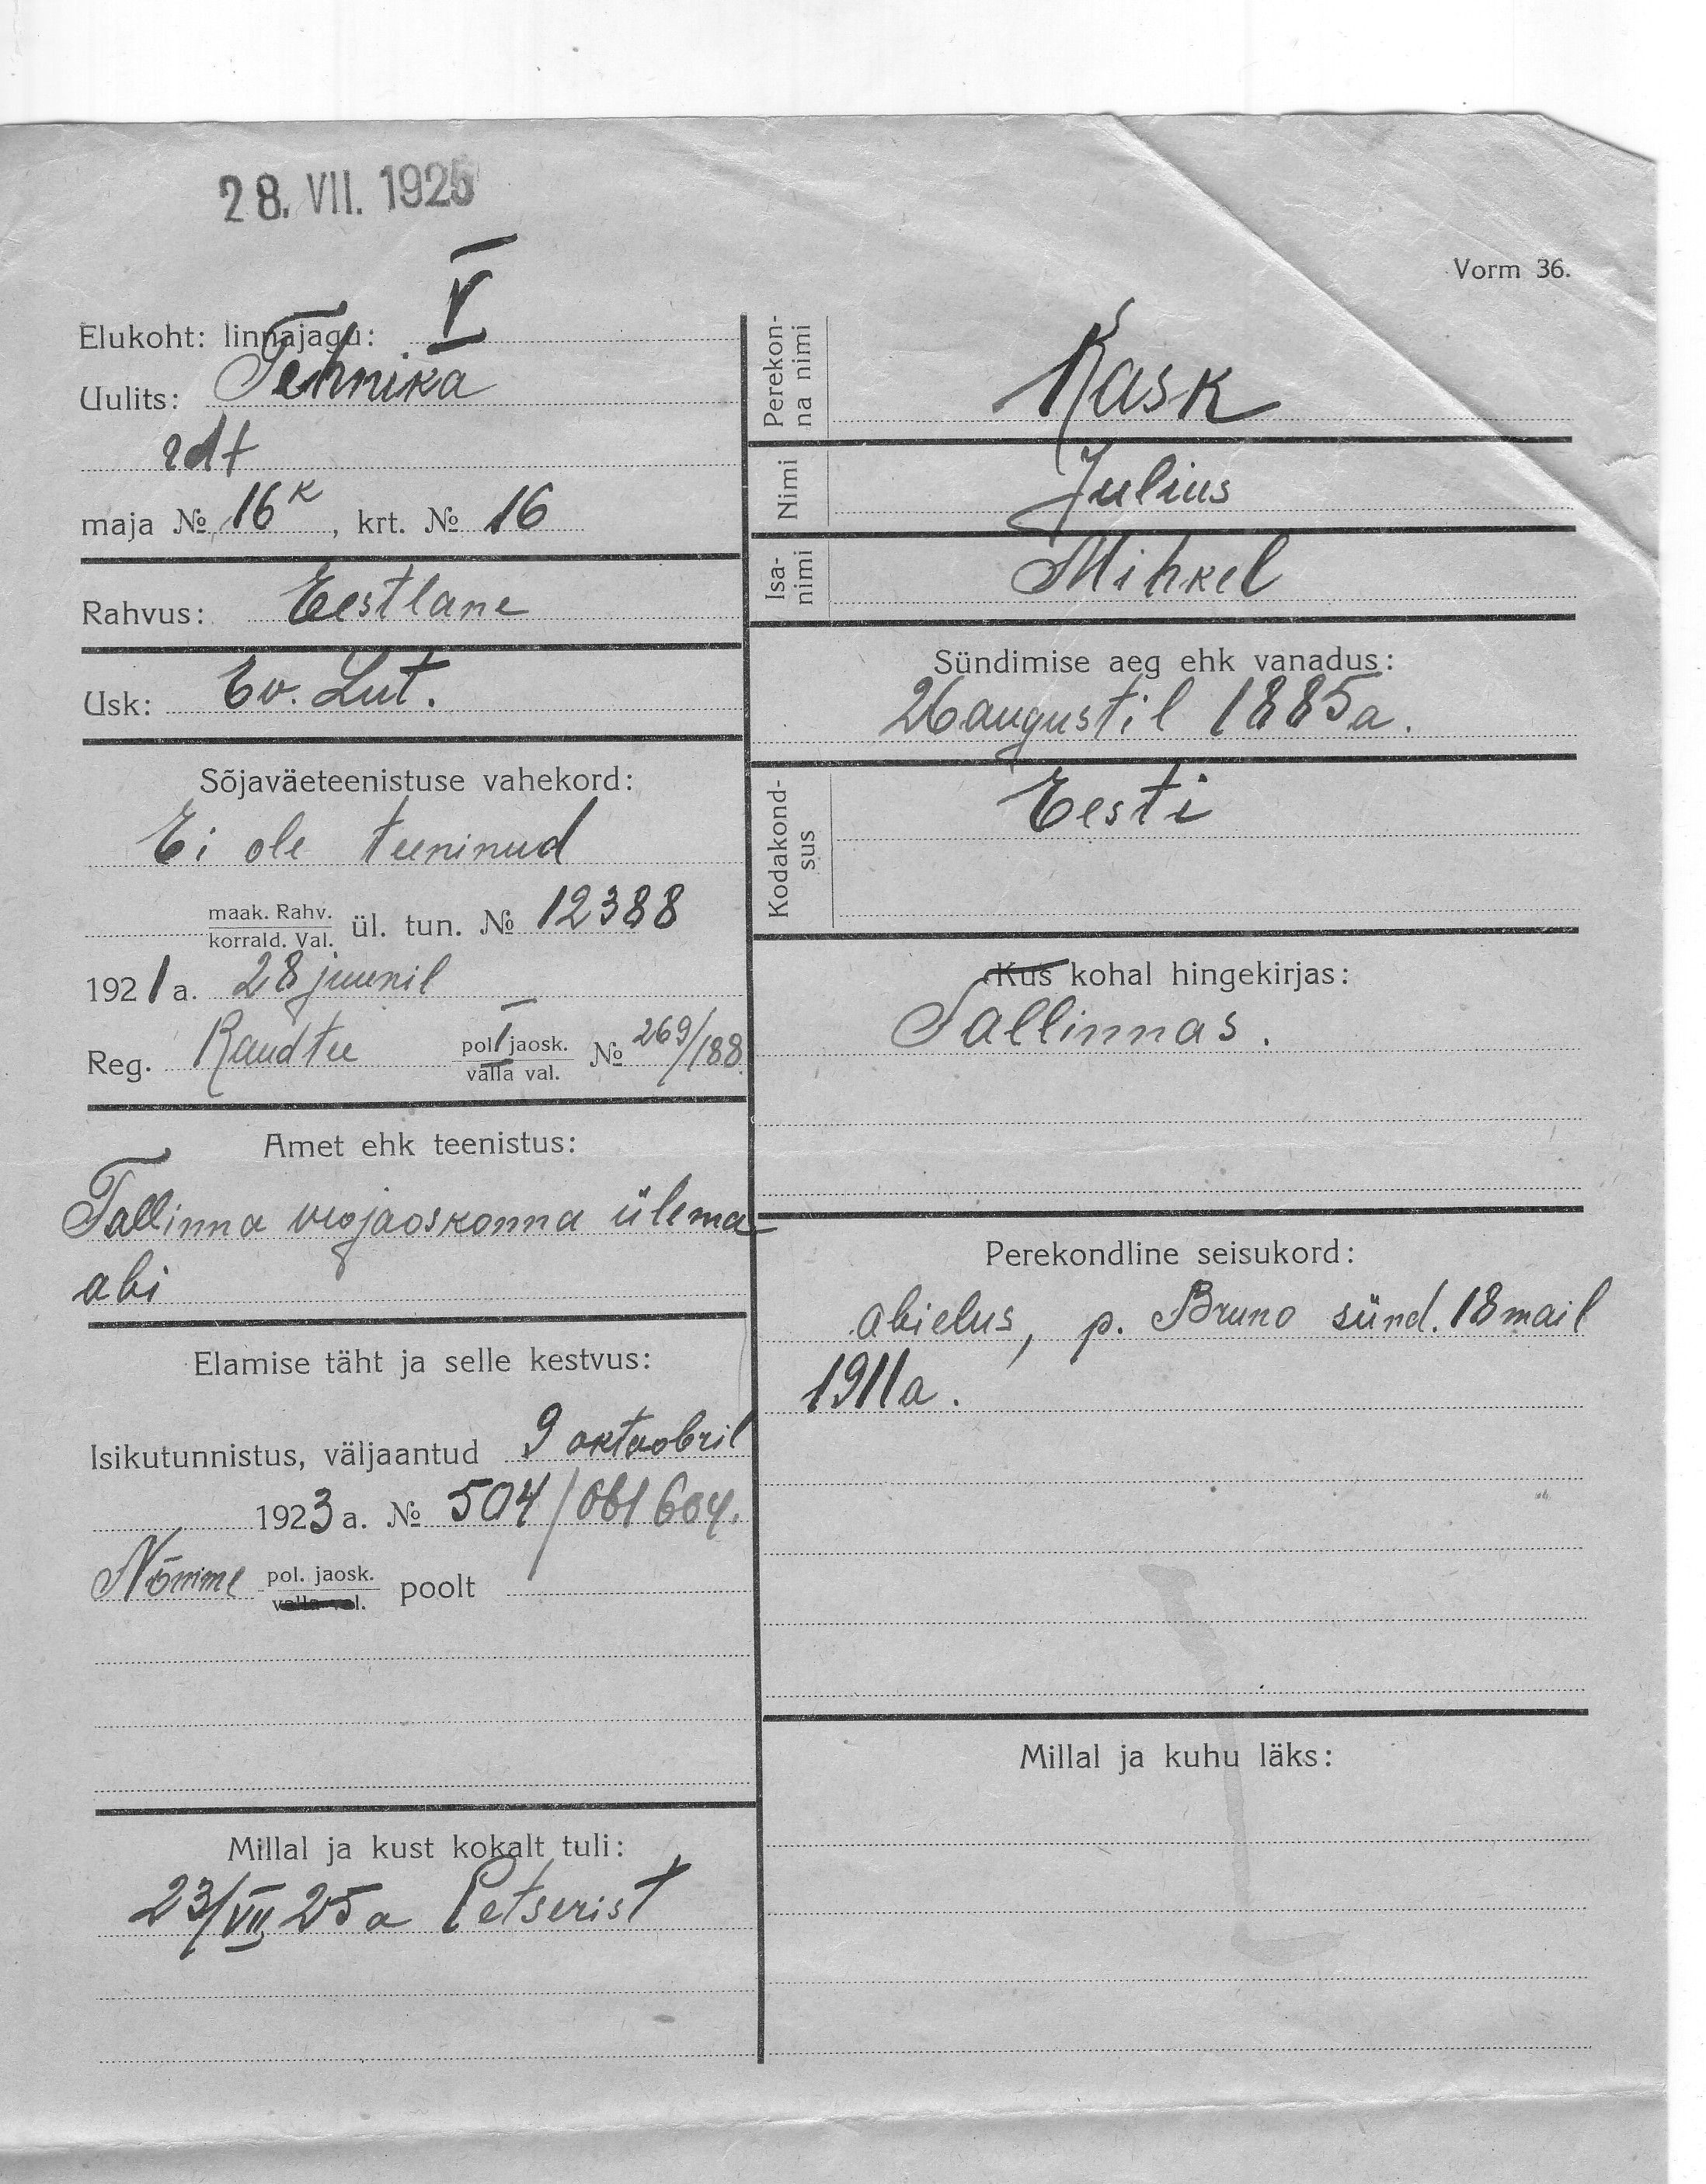 28. VII. 1925
Vorm 36.
Elukoht: linnajagu: V
Uulits: Tehnika
rdt
maja № 16 K, krt. № 16
Rahvus: Eestlane
Usk: Ev. Lut.
Sõjaväeteenistuse vahekord:
Ei ole teeninud
maak. Rahv.
korrald. Val. ül. tun. № 12388
1921 a. 28 juunil
Reg. Raudtee pol. jaosk. № 269/188
valla val.
Amet ehk teenistus:
Tallinna veojaoskonna ülema
abi
Elamise täht ja selle kestvus:
Isikutunnistus, väljaantud 9 oktoobril
1923 a. № 504/061604.
Nõmme pol. jaosk. poolt
valla val.
Millal ja kust kokalt tuli:
23/VII 25 a Petserist
Perekonna nimi Kask
Nimi Julius
Isanimi Mihkel
Sündimise aeg ehk vanadus:
26 augustil 1885 a.
Kodakondsus Eesti
Kus kohal hingekirjas:
Tallinnas.
Perekondline seisukord:
abielus, p. Bruno sünd. 18 mail
1911 a.
Millal ja kuhu läks: